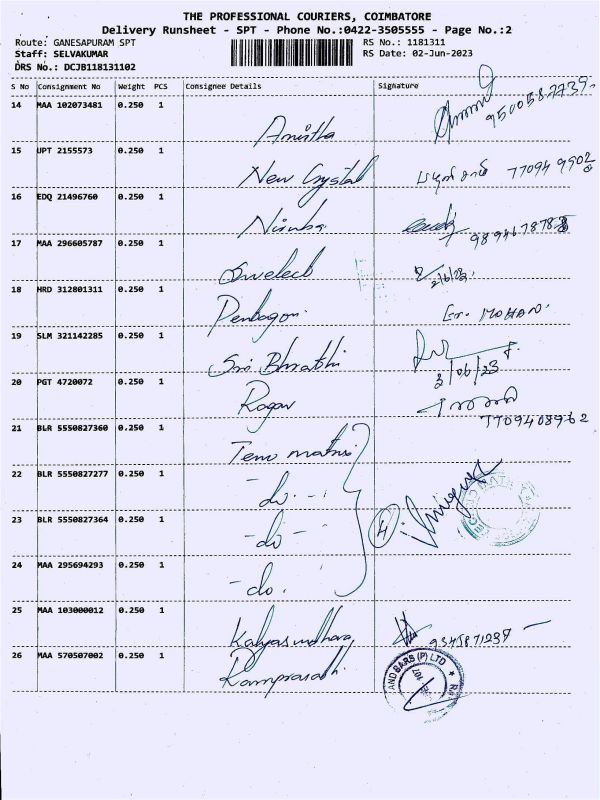 THE PROFESSIONAL COURIERS, COIMBATORE
Delivery Runsheet - SPT - Phone No.:0422-3505555 - Page No.:2
Route: GANESAPURAM SPT RS No.: 1181311
Staff: SELVAKUMAR RS Date: 02-Jun-2023
DRS No.: DCJB118131102
S No Consignment No Weight PCS Consignee Details Signature
14 MAA 102073481 0.250 1
Amirtha
15 UPT 2155573 0.250 1
New Crystal 77094 9902
16 EDQ 21496760 0.250 1
Nirmba
17 MAA 296605787 0.250 1
18 HRD 312801311 0.250 1
Pentagon. Er. MOHAN.
19 SLM 321142285 0.250 1
Sri Bharathi 3/06/23
20 PGT 4720072 0.250 1
Ragav 7709408962
21 BLR 5550827360 0.250 1
22 BLR 5550827277 0.250 1
-do-
23 BLR 5550827364 0.250 1
-do- 4
24 MAA 295694293 0.250 1
-do.
25 MAA 103000012 0.250 1
26 MAA 570507002 0.250 1
Ramprasath
AND BARS (P) LTD